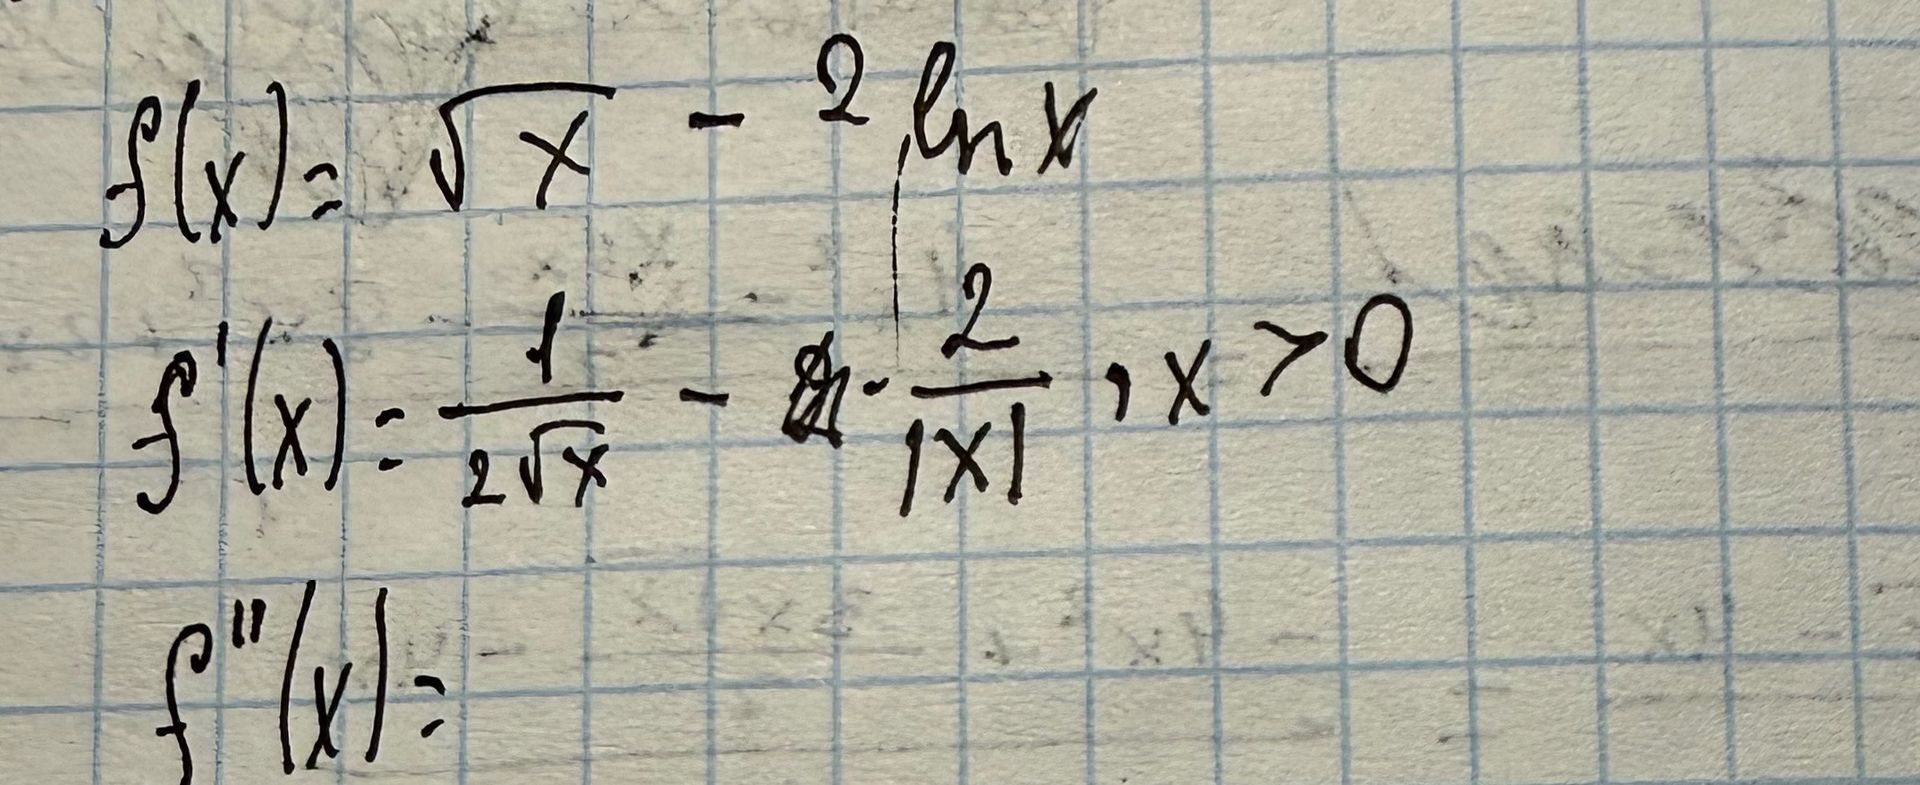 f(x) = √x - 2 ln x
f'(x) = 1/(2√x) - · 2/|x| , x > 0
f''(x) =